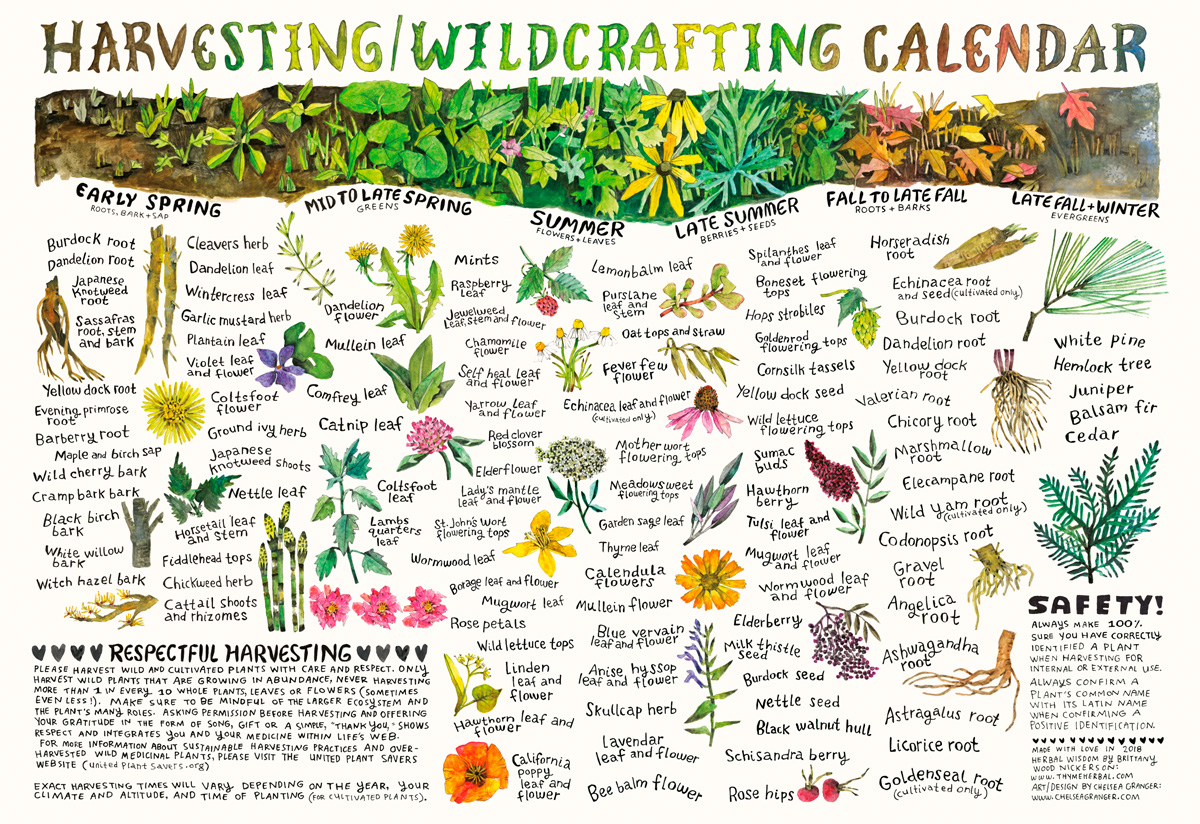 HARVESTING/WILDCRAFTING CALENDAR
EARLY SPRING
ROOTS, BARK + SAP
Burdock root
Dandelion root
Japanese
Knotweed
root
Sassafras
root, stem
and bark
Yellow dock root
Evening primrose
root
Barberry root
Maple and birch sap
Wild cherry bark
Cramp bark bark
Black birch
bark
White willow
bark
Witch hazel bark
MID TO LATE SPRING
GREENS
Cleavers herb
Dandelion leaf
Wintercress leaf
Garlic mustard herb
Plantain leaf
Violet leaf
and flower
Coltsfoot
flower
Ground ivy herb
Japanese
Knotweed shoots
Nettle leaf
Horsetail leaf
and stem
Fiddlehead tops
Chickweed herb
Cattail shoots
and rhizomes
Dandelion
flower
Mullein leaf
Comfrey leaf
Catnip leaf
Coltsfoot
leaf
Lambs
quarters
leaf
SUMMER
FLOWERS + LEAVES
Mints
Raspberry
Leaf
Jewelweed
Leaf, stem and flower
Chamomile
flower
Self heal leaf
and flower
Yarrow leaf
and flower
Red clover
blossom
Elderflower
Lady's mantle
leaf and flower
St. John's wort
flowering tops
Wormwood leaf
Borage leaf and flower
Mugwort leaf
Rose petals
Wild lettuce tops
Linden
leaf and
flower
Hawthorn leaf and
flower
California
poppy
leaf and
flower
Lemonbalm leaf
Purslane
leaf and
stem
Oat tops and straw
Feverfew
flower
Echinacea leaf and flower
(cultivated only)
Motherwort
flowering tops
Meadowsweet
flowering tops
Garden sage leaf
Thyme leaf
Calendula
flowers
Mullein flower
Blue vervain
leaf and flower
Anise hyssop
leaf and flower
Skullcap herb
Lavendar
leaf and flower
Bee balm flower
LATE SUMMER
BERRIES + SEEDS
Spilanthes leaf
and flower
Boneset flowering
tops
Hops strobiles
Goldenrod
flowering tops
Cornsilk tassels
Yellow dock seed
Wild lettuce
flowering tops
Sumac
buds
Hawthorn
berry
Tulsi leaf and
flower
Mugwort leaf
and flower
Wormwood leaf
and flower
Elderberry
Milk thistle
seed
Burdock seed
Nettle seed
Black walnut hull
Schisandra berry
Rose hips
FALL TO LATE FALL
ROOTS + BARKS
Horseradish
root
Echinacea root
and seed (cultivated only)
Burdock root
Dandelion root
Yellow dock
root
Valerian root
Chicory root
Marshmallow
root
Elecampane root
Wild yam root
(cultivated only)
Codonopsis root
Gravel
root
Angelica
root
Ashwagandha
root
Astragalus root
Licorice root
Goldenseal root
(cultivated only)
LATE FALL + WINTER
EVERGREENS
White pine
Hemlock tree
Juniper
Balsam fir
Cedar
RESPECTFUL HARVESTING
PLEASE HARVEST WILD AND CULTIVATED PLANTS WITH CARE AND RESPECT. ONLY
HARVEST WILD PLANTS THAT ARE GROWING IN ABUNDANCE, NEVER HARVESTING
MORE THAN 1 IN EVERY 10 WHOLE PLANTS, LEAVES OR FLOWERS (SOMETIMES
EVEN LESS!). MAKE SURE TO BE MINDFUL OF THE LARGER ECOSYSTEM AND
THE PLANT'S MANY ROLES. ASKING PERMISSION BEFORE HARVESTING AND OFFERING
YOUR GRATITUDE IN THE FORM OF SONG, GIFT OR A SIMPLE, "THANK YOU," SHOWS
RESPECT AND INTEGRATES YOU AND YOUR MEDICINE WITHIN LIFE'S WEB.
FOR MORE INFORMATION ABOUT SUSTAINABLE HARVESTING PRACTICES AND OVER-
HARVESTED WILD MEDICINAL PLANTS, PLEASE VISIT THE UNITED PLANT SAVERS
WEBSITE (united Plant Savers.org)
EXACT HARVESTING TIMES WILL VARY DEPENDING ON THE YEAR, YOUR
CLIMATE AND ALTITUDE, AND TIME OF PLANTING (FOR CULTIVATED PLANTS).
SAFETY!
ALWAYS MAKE 100%
SURE YOU HAVE CORRECTLY
IDENTIFIED A PLANT
WHEN HARVESTING FOR
INTERNAL OR EXTERNAL USE.
ALWAYS CONFIRM A
PLANT'S COMMON NAME
WITH ITS LATIN NAME
WHEN CONFIRMING A
POSITIVE IDENTIFICATION.
MADE WITH LOVE IN 2018
HERBAL WISDOM BY BRITTANY
WOOD NICKERSON:
WWW.THYMEHERBAL.COM
ART/DESIGN BY CHELSEA GRANGER:
WWW.CHELSEAGRANGER.COM